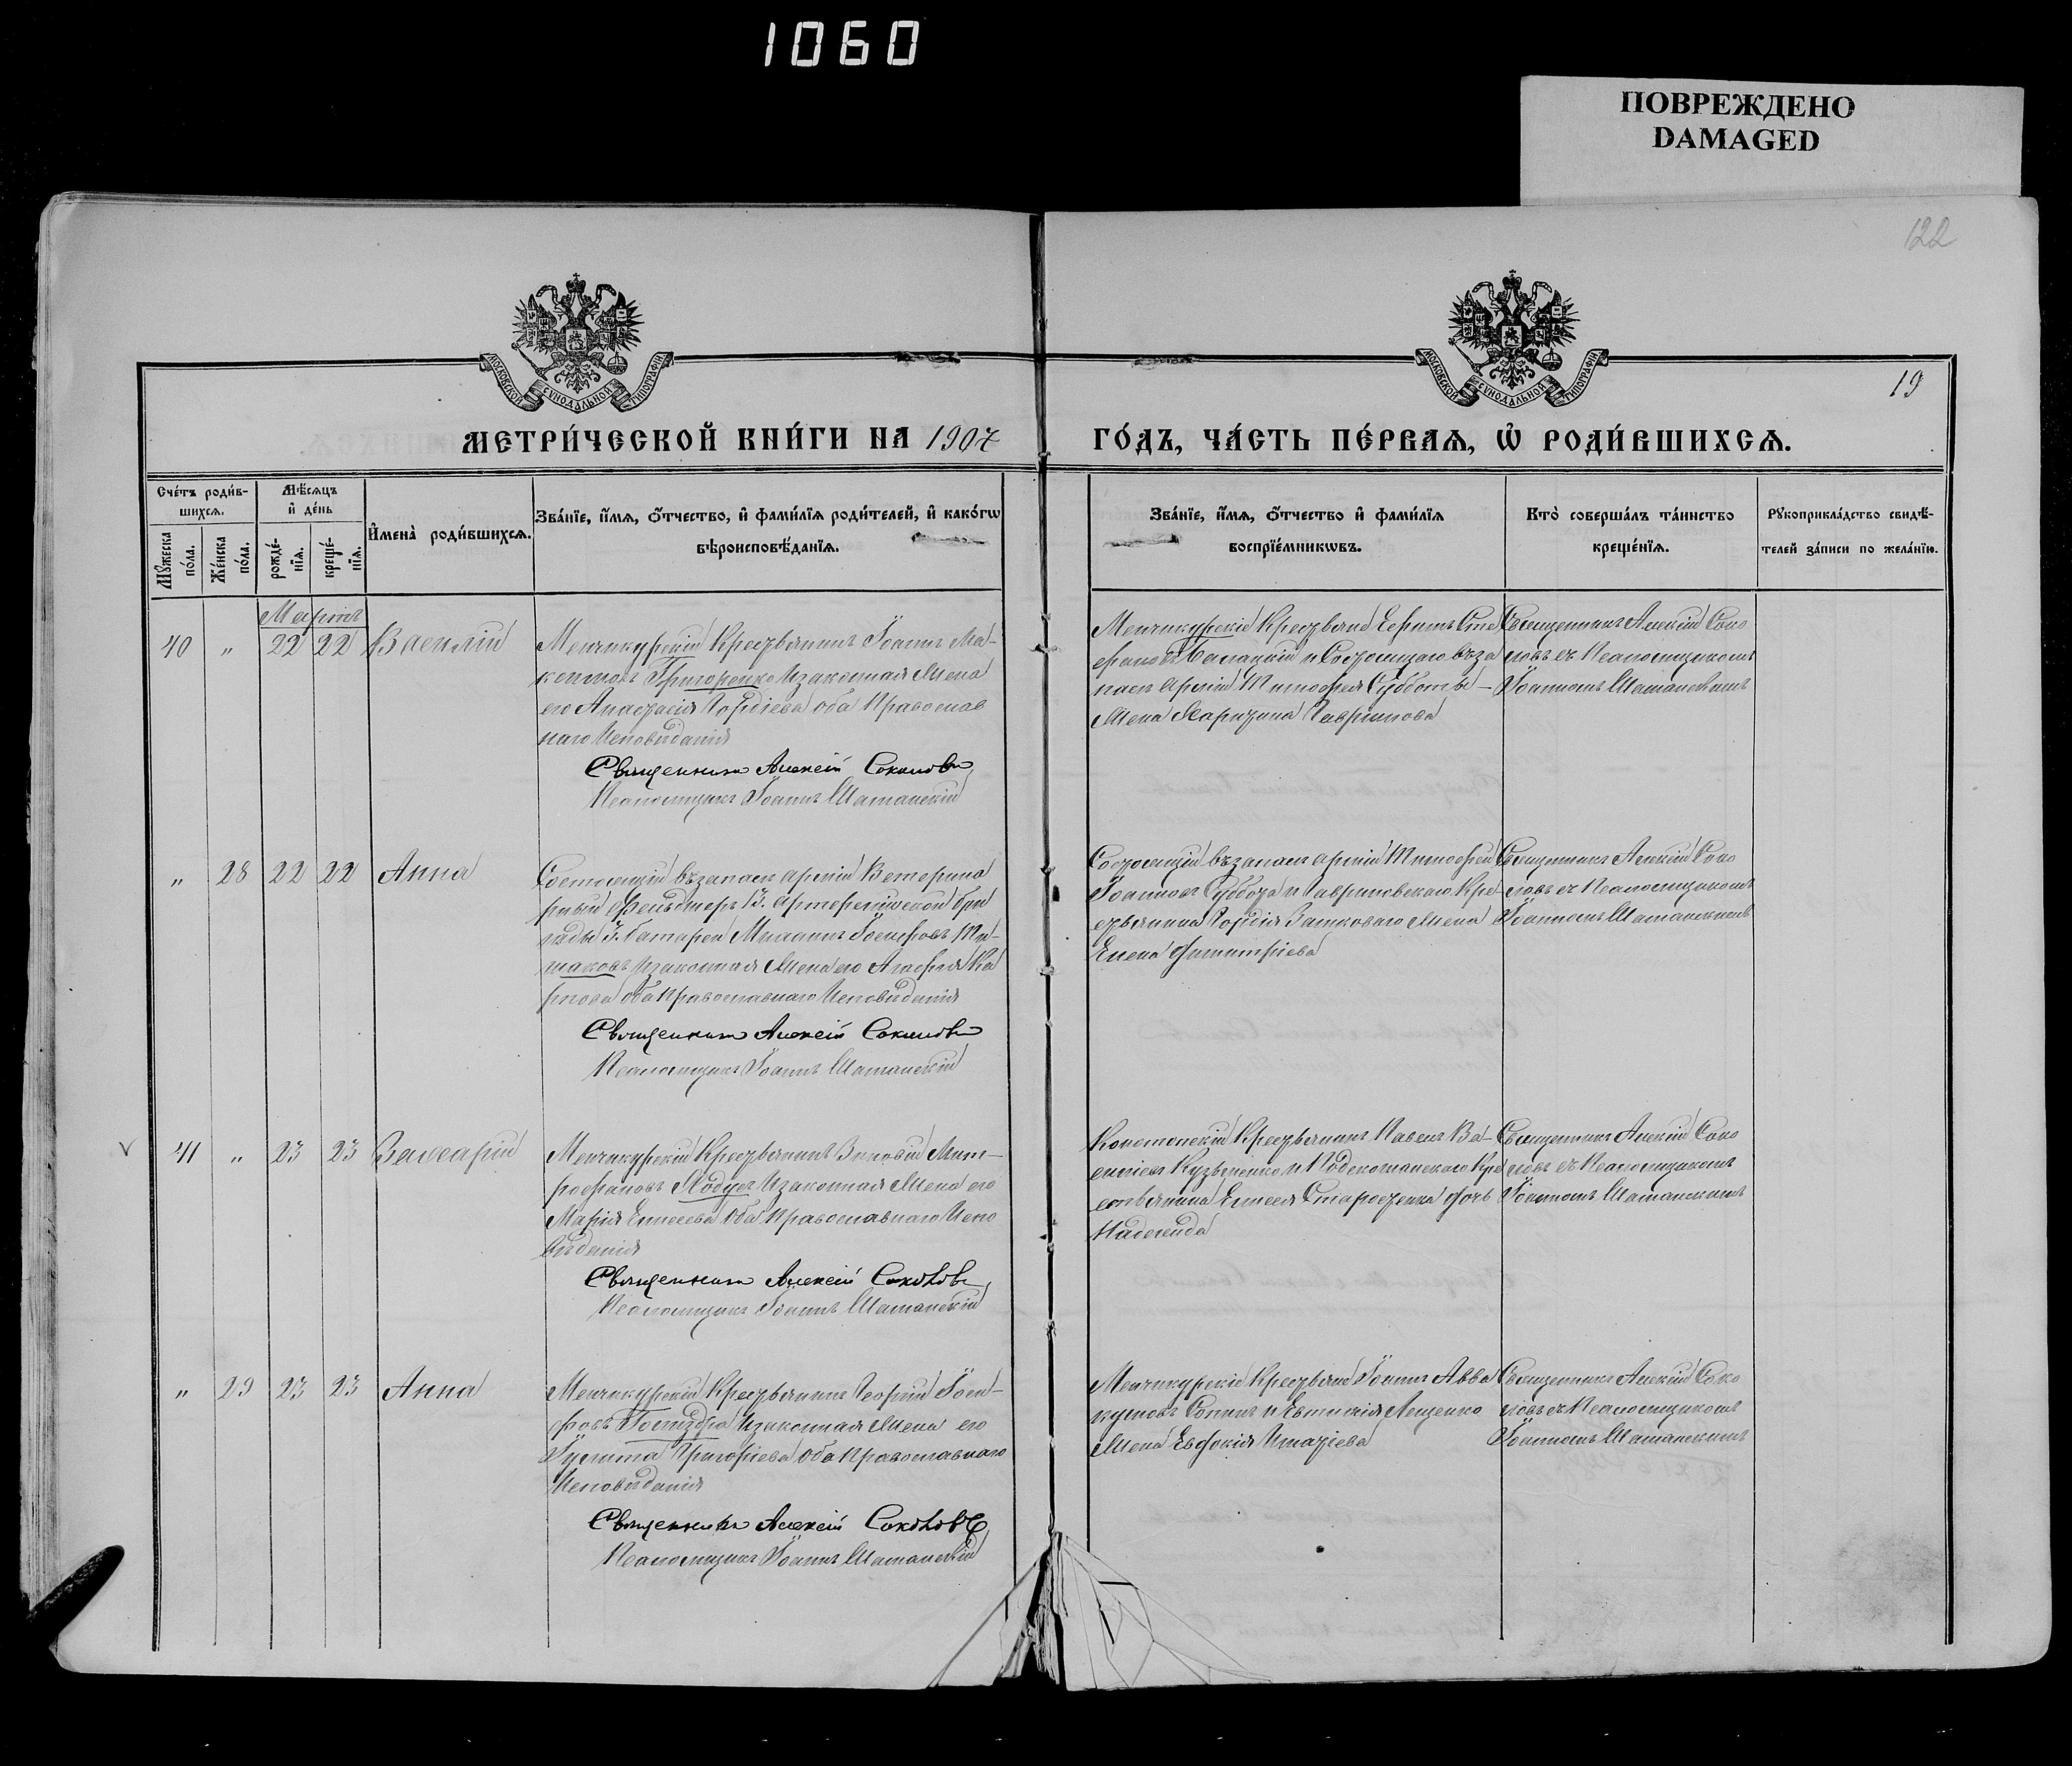 1060
ПОВРЕЖДЕНО
DAMAGED
122
19
МОСКОВСКОЙ СѴНОДАЛЬНОЙ ТИПОГРАФІИ
МОСКОВСКОЙ СѴНОДАЛЬНОЙ ТИПОГРАФІИ
МЕТРИ́ЧЕСКОЙ КНИ́ГИ НА 1907 ГО́ДЪ, ЧА́СТЬ ПЕ́РВАѦ, Ѡ҆ РОДИ́ВШИХСѦ.
Сче́тъ роди́в-
шихсѧ.
Мꙋ́жеска по́ла.
Же́нска по́ла.
Мѣ́сѧцъ
и҆ де́нь
рожде́-
нїѧ.
креще́-
нїѧ.
И҆мена̀ роди́вшихсѧ.
Зва́нїе, и҆́мѧ, ѻ҆́тчество, и҆ фами́лїѧ роди́телей, и҆ како́гѡ
вѣроисповѣ́данїѧ.
Зва́нїе, и҆́мѧ, ѻ҆́тчество и҆ фами́лїѧ
воспрїе́мникѡвъ.
Кто̀ соверша́лъ та́инство
креще́нїѧ.
Рꙋкоприкла́дство свидѣ́-
телей за́писи по жела́нїю.
Мартъ
40 " 22 22 Василій
Менчикурскій Крестьянинъ Іоаннъ Ма-
ксимовъ Григоренко и законная жена
его Анастасія Гордіева оба Православ
наго Исповѣданія
Священникъ Алексій Соколовъ
Псаломщикъ Іоаннъ Шаманскій
Менчикурскіе Крестьяне Ефимъ Сте
фановъ и Состоящаго въ за
пасѣ Арміи Тимофея Субботы
жена Харитина Гаврилова
Священникъ Алексій Соко
ловъ съ Псаломщикомъ
Іоанномъ Шаманскимъ
" 28 22 22 Анна
Состоящій въ запасѣ арміи Ветерина
рный фельдшеръ 13. Артилерійской бри
гады 3. батареи Іосифовъ Ти-
маковъ и законная жена его Агафія Ка
рпова оба Православнаго Исповѣданія
Священникъ Алексій Соколовъ
Псаломщикъ Іоаннъ Шаманскій
Состоящій въ запасѣ арміи Тимофей
Іоанновъ Суббота и Гавриловскаго Кре-
стьянина Гордія жена
Елена Димитріева
Священникъ Алексій Соко
ловъ съ Псаломщикомъ
Іоанномъ Шаманскимъ
41 " 23 23 Виссаріон
Менчикурскій Крестьянинъ Зиновій Мит-
рофановъ и законная жена его
Марія Елисеева Оба Православнаго Испо
вѣданія
Священникъ Алексій Соколовъ
Псаломщикъ Іоаннъ Шаманскій
Конотопскій Крестьянинъ Павелъ Ва-
силіевъ Кузьменко и Кре
стьянина Елисея Старостенка дочь
Надежда
Священникъ Алексій Соко
ловъ съ Псаломщикомъ
Іоанномъ Шаманскимъ
" 29 23 23 Анна
Менчикурскій Крестьянинъ Георгій Іоси-
фовъ и законная жена его
Іулитта Григоріева Оба Православнаго
Исповѣданія
Священникъ Алексій Соколовъ
Псаломщикъ Іоаннъ Шаманскій
Менчикурскіе Крестьяне Іоаннъ Авва
кумовъ Сопинъ и Лещенко
жена Евдокія Игнатіева
Священникъ Алексій Соко
ловъ съ Псаломщикомъ
Іоанномъ Шаманскимъ